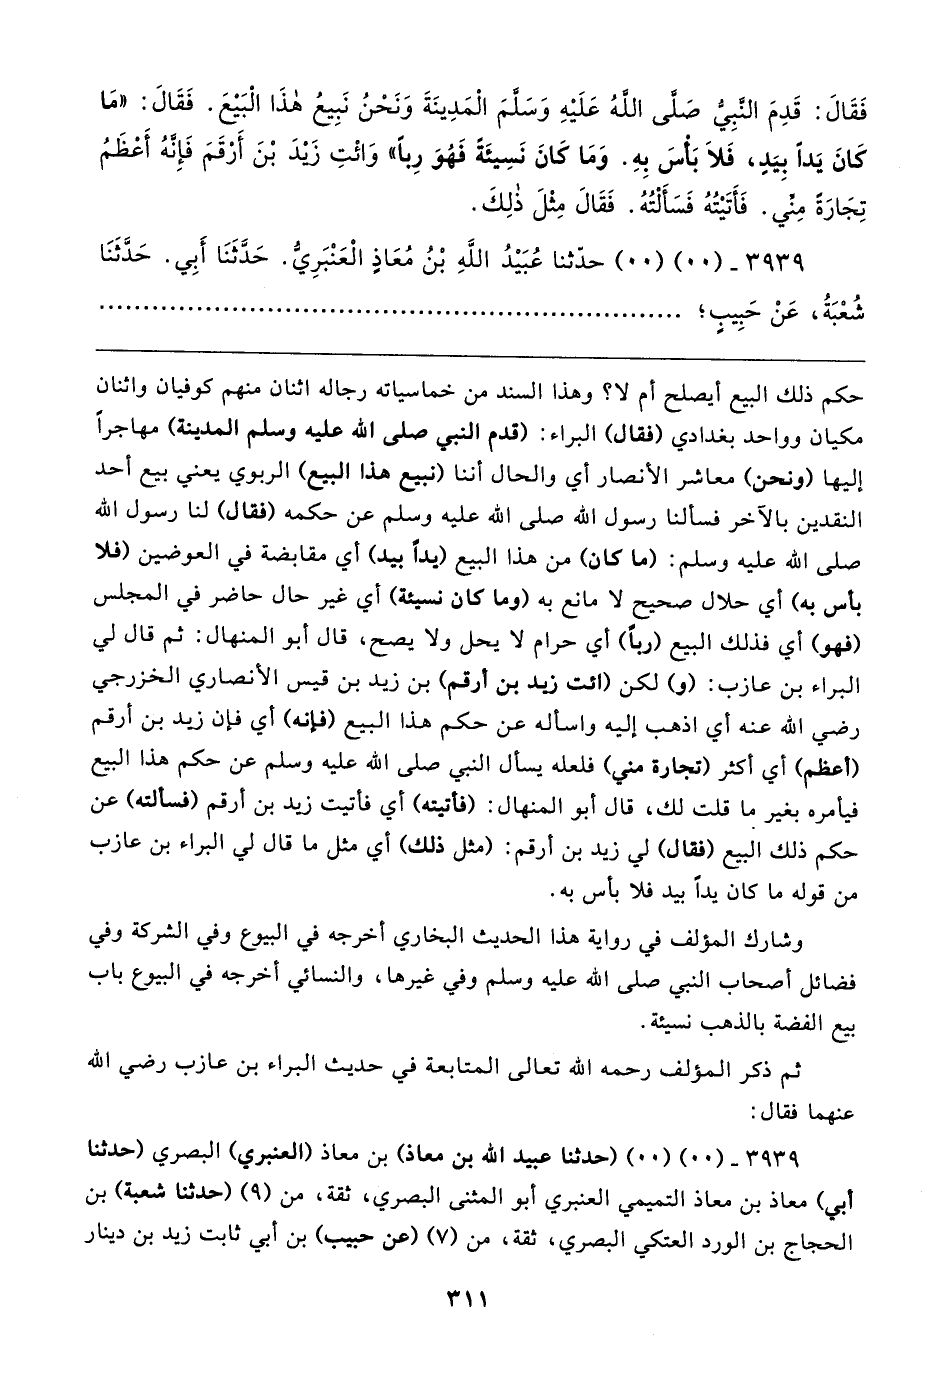 فَقَالَ: قَدِمَ النَّبِيُّ صَلَّى اللَّهُ عَلَيْهِ وَسَلَّمَ الْمَدِينَةَ وَنَحْنُ نَبِيعُ هٰذَا الْبَيْعَ. فَقَالَ: «مَا
كَانَ يَداً بِيَدٍ، فَلَا بَأْسَ بِهِ. وَمَا كَانَ نَسِيئَةً فَهُوَ رِباً» وَائْتِ زَيْدَ بْنَ أَرْقَمَ فَإِنَّهُ أَعْظَمُ
تِجَارَةً مِنِّي. فَأَتَيْتُهُ فَسَأَلْتُهُ. فَقَالَ مِثْلَ ذٰلِكَ.
٣٩٣٩ - (٠٠) (٠٠) حدّثنا عُبَيْدُ اللَّهِ بْنُ مُعَاذٍ الْعَنْبَرِيُّ. حَدَّثَنَا أَبِي. حَدَّثَنَا
شُعْبَةُ، عَنْ حَبِيبٍ؛ ................................................................
حكم ذلك البيع أيصلح أم لا؟ وهذا السند من خماسياته رجاله اثنان منهم كوفيان واثنان
مكيان وواحد بغدادي (فقال) البراء: (قدم النبي صلى الله عليه وسلم المدينة) مهاجراً
إليها (ونحن) معاشر الأنصار أي والحال أننا (نبيع هذا البيع) الربوي يعني بيع أحد
النقدين بالآخر فسألنا رسول الله صلى الله عليه وسلم عن حكمه (فقال) لنا رسول الله
صلى الله عليه وسلم: (ما كان) من هذا البيع (يداً بيد) أي مقابضة في العوضين (فلا
بأس به) أي حلال صحيح لا مانع به (وما كان نسيئة) أي غير حال حاضر في المجلس
(فهو) أي فذلك البيع (رباً) أي حرام لا يحل ولا يصح، قال أبو المنهال: ثم قال لي
البراء بن عازب: (و) لكن (ائت زيد بن أرقم) بن زيد بن قيس الأنصاري الخزرجي
رضي الله عنه أي اذهب إليه واسأله عن حكم هذا البيع (فإنه) أي فإن زيد بن أرقم
(أعظم) أي أكثر (تجارة مني) فلعله يسأل النبي صلى الله عليه وسلم عن حكم هذا البيع
فيأمره بغير ما قلت لك، قال أبو المنهال: (فأتيته) أي فأتيت زيد بن أرقم (فسألته) عن
حكم ذلك البيع (فقال) لي زيد بن أرقم: (مثل ذلك) أي مثل ما قال لي البراء بن عازب
من قوله ما كان يداً بيد فلا بأس به.
وشارك المؤلف في رواية هذا الحديث البخاري أخرجه في البيوع وفي الشركة وفي
فضائل أصحاب النبي صلى الله عليه وسلم وفي غيرها، والنسائي أخرجه في البيوع باب
بيع الفضة بالذهب نسيئة.
ثم ذكر المؤلف رحمه الله تعالى المتابعة في حديث البراء بن عازب رضي الله
عنهما فقال:
٣٩٣٩ - (٠٠) (٠٠) (حدثنا عبيد الله بن معاذ) بن معاذ (العنبري) البصري (حدثنا
أبي) معاذ بن معاذ التميمي العنبري أبو المثنى البصري، ثقة، من (٩) (حدثنا شعبة) بن
الحجاج بن الورد العتكي البصري، ثقة، من (٧) (عن حبيب) بن أبي ثابت زيد بن دينار
٣١١